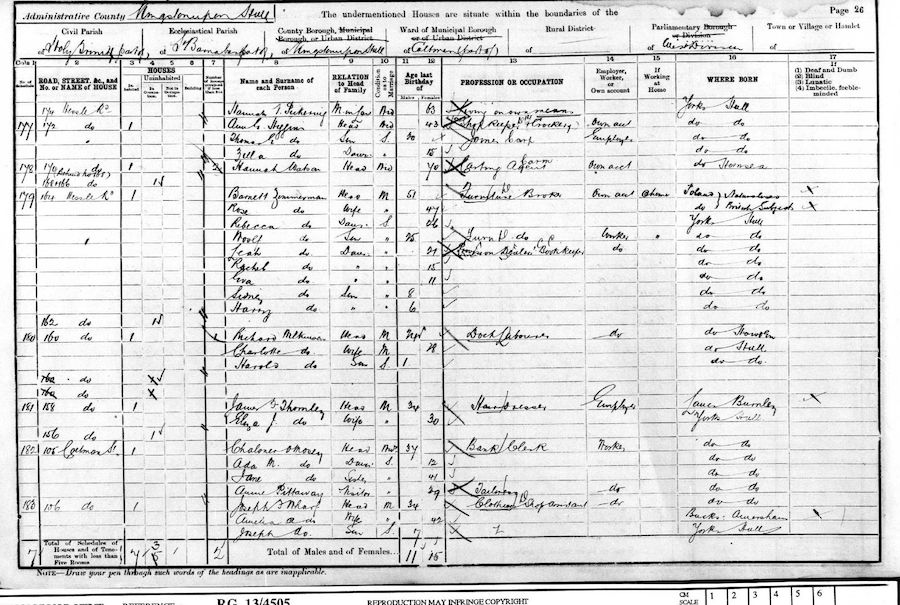 Administrative County Kingston upon Hull
The undermentioned Houses are situate within the boundaries of the
Page 26
Civil Parish
of Holy Trinity (part of)
Ecclesiastical Parish
of St Barnabas (part of)
County Borough, Municipal Borough, or Urban District
of Kingston upon Hull
Ward of Municipal Borough or of Urban District
of Coltman (part of)
Rural District
of
Parliamentary Borough or Division
of West Division
Town or Village or Hamlet
of
Cols. 1 2 3 4 5 6 7 8 9 10 11 12 13 14 15 16 17
No. of Schedule
ROAD, STREET, &c., and No. or NAME of HOUSE
HOUSES
Inhabited
Uninhabited
In Occupation
Not in Occupation
Building
Name and Surname of each Person
RELATION to Head of Family
Condition as to Marriage
Age last Birthday of
Males Females
PROFESSION OR OCCUPATION
Employer, Worker, or Own account
If Working at Home
WHERE BORN
If
(1) Deaf and Dumb
(2) Blind
(3) Lunatic
(4) Imbecile, feeble-minded
174 Hessle Rd Hannah Pickering Wid 63 Living on own means Yorks Hull
177 172 do 1 Head Wid 43 Shop Keeper Crockery Own acct do do
Thomas do Son S 20 Employer do do
Zilla do Daur 15 do do
178 170 do 1 2 Hannah Head Wid 70 Carting Agent Own acct do Hornsea
168 166 do
179 164 Hessle Rd 1 Barnett Zimmerman Head M 51 Furniture Broker Own acct Poland Naturalised
Rose do Wife 47 do British Subject
Rebecca do Daur S 26 Yorks Hull
Woolf do Son 25 Furn do Worker do do
Leah do Daur 21 Book keeper do do do
Rachel do 15 do do
Eva do 11 do do
Sidney do Son 8 do do
Harry do 6 do do
162 do
180 160 do 1 Richard Wilkinson Head M Dock Labourer do do Howden
Charlotte do Wife M 28 do Hull
Harold do Son S 1 do do
do
do
181 158 do 1 James Thornley Head M 34 Hairdresser Employer Lancs Burnley
Eliza do Wife 30 Yorks Hull
156 do
182 108 Coltman St 1 Chaloner Head Wid 37 Bank Clerk Worker do do
Ada M. do Daur S 12 do do
Jane do Sister 41 do do
Annie Pittaway Visitor 29 Tailoress do do do
183 106 do 1 Joseph Head M 34 Clothiers Shop Assistant do do do
Amelia do Wife 42 Bucks Amersham
Joseph do Son S 7 Yorks Hull
7 Total of Schedules of Houses and of Tenements with less than Five Rooms 7 2
Total of Males and Females... 11 15
NOTE—Draw your pen through such words of the headings as are inapplicable.
REFERENCE
RG 13/4505
REPRODUCTION MAY INFRINGE COPYRIGHT
CM SCALE 1 2 3 4 5 6